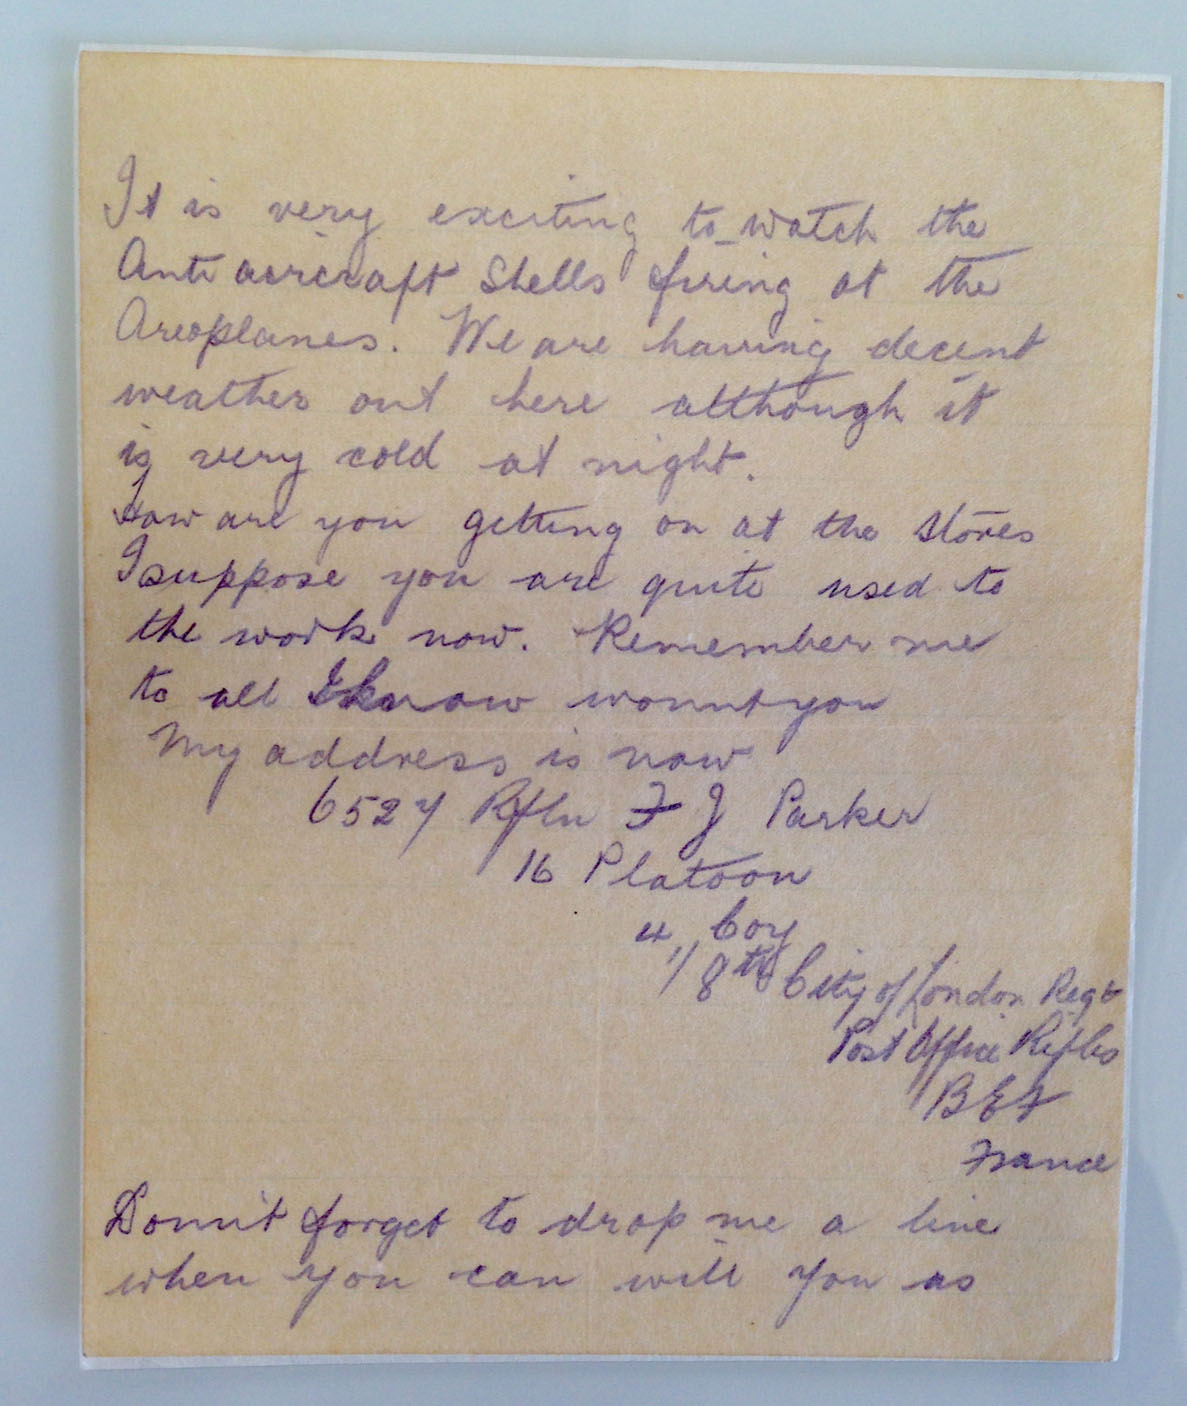 It is very exciting to watch the
Anti aircraft Shells firing at the
Areoplanes. We are having decent
weather out here although it
is very cold at night.
How are you getting on at the stores
I suppose you are quite used to
the work now. Remember me
to all I know wonnt you
My address is now
6527 Rfln F J Parker
16 Platoon
4 Coy
1/8th City of London Regt
Post Office Rifles
BEF
France
Donn't forget to drop me a line
when you can will you as